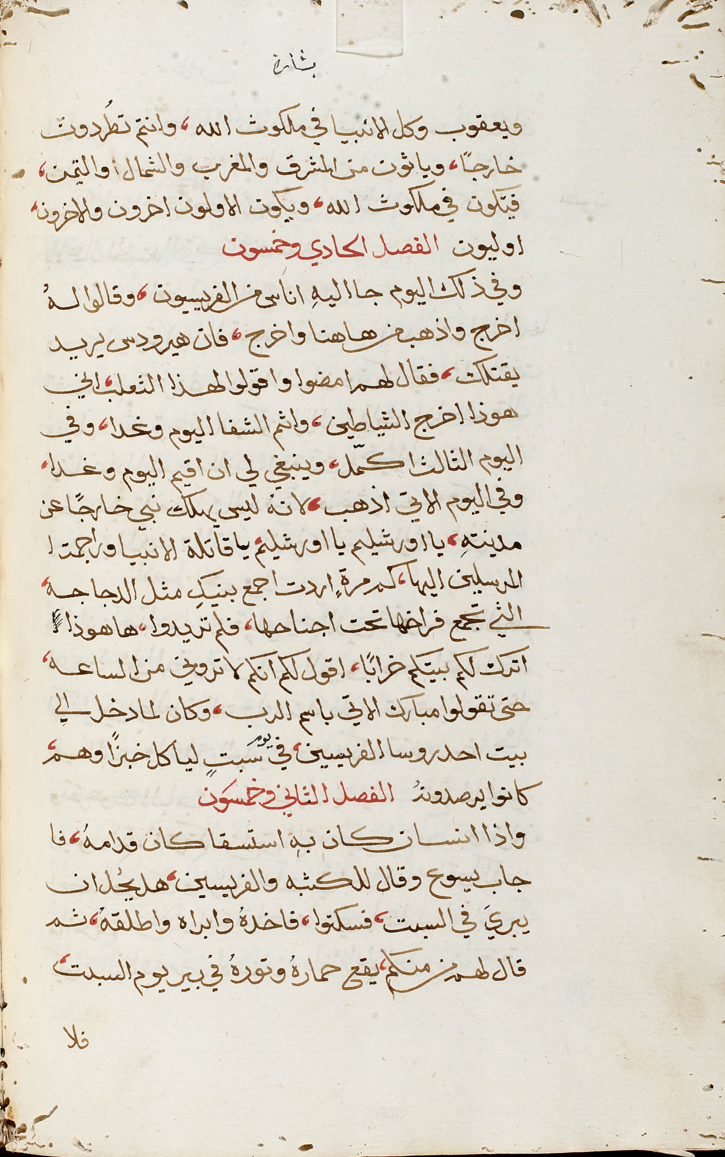 بشارة
ويعقوب وكل الانبيا في ملكوت الله، وانتم تطُردون
خارجًا، وياتون من المشرق والمغرب والشمال والتيمن،
فيتكون في ملكوت الله، ويكون الاولون اخرون والاخرون،
اوليون الفصل الحادي وخمسون
وفي ذلك اليوم جا اليهِ اناس من الفريسيون، وقالوا لهُ
اخرج واذهب من هاهنا واخرج، فان هيرودس يريد
يقتلك، فقال لهم امضوا واقولوا لهذا الثعلب، اني
هوذا اخرج الشياطين، واتم الشفا اليوم وغدا، وفي
اليوم الثالث اكمّل، وينبغي لي ان اقيم اليوم وغدا،
وفي اليوم الاتي اذهب، لانهُ ليس يهلك نبي خارجًا عن
مدينتهِ، يا اورشليم يا اورشليم يا قاتلة الانبيا وراجمة ا
المرسلين اليها، كم مرةٍ اردت اجمع بنيكِ مثل الدجاجة،
التي تجمع فراخها تحت اجناحها، فلم تريدوا، ها هوذا
اترك لكم بيتكم خرابًا، اقول لكم انكم لا تروني من الساعة،
حتي تقولوا مبارك الاتي باسم الرب، وكان لما دخل الي
بيت احد روسا الفريسين، في يوم سَبتٍ لياكل خبزًا وهم،
كانوا يرصدونهُ الفصل الثاني وخمسون
واذا انسان كان بهِ استسقا كان قدامهُ، فا
جاب يسوع وقال للكتبه والفريسين، هل يحُل ان
يبريَ في السبت، فسكتوا، فاخدهُ وابراه واطلقهُ، ثم
قال لهم من منكم، يقع حمارهُ وتورهُ في بير يوم السبت،
فلا